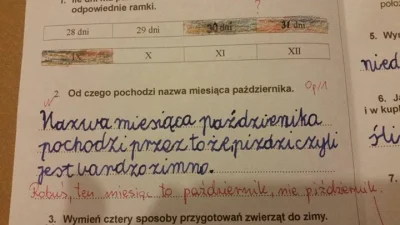 odpowiednie ramki. ?
28 dni 29 dni 30 dni 31 dni
IX X XI XII
2. Od czego pochodzi nazwa miesiąca października. 0p/1
Nazwa miesiąca października
pochodzi przez to że piździ czyli
jest bardzo zimno.
Robuś, ten miesiąc to październik, nie piździernik.
3. Wymień cztery sposoby przygotowań zwierząt do zimy.
5. Wy
nied
6.
i w kup
śli
7.